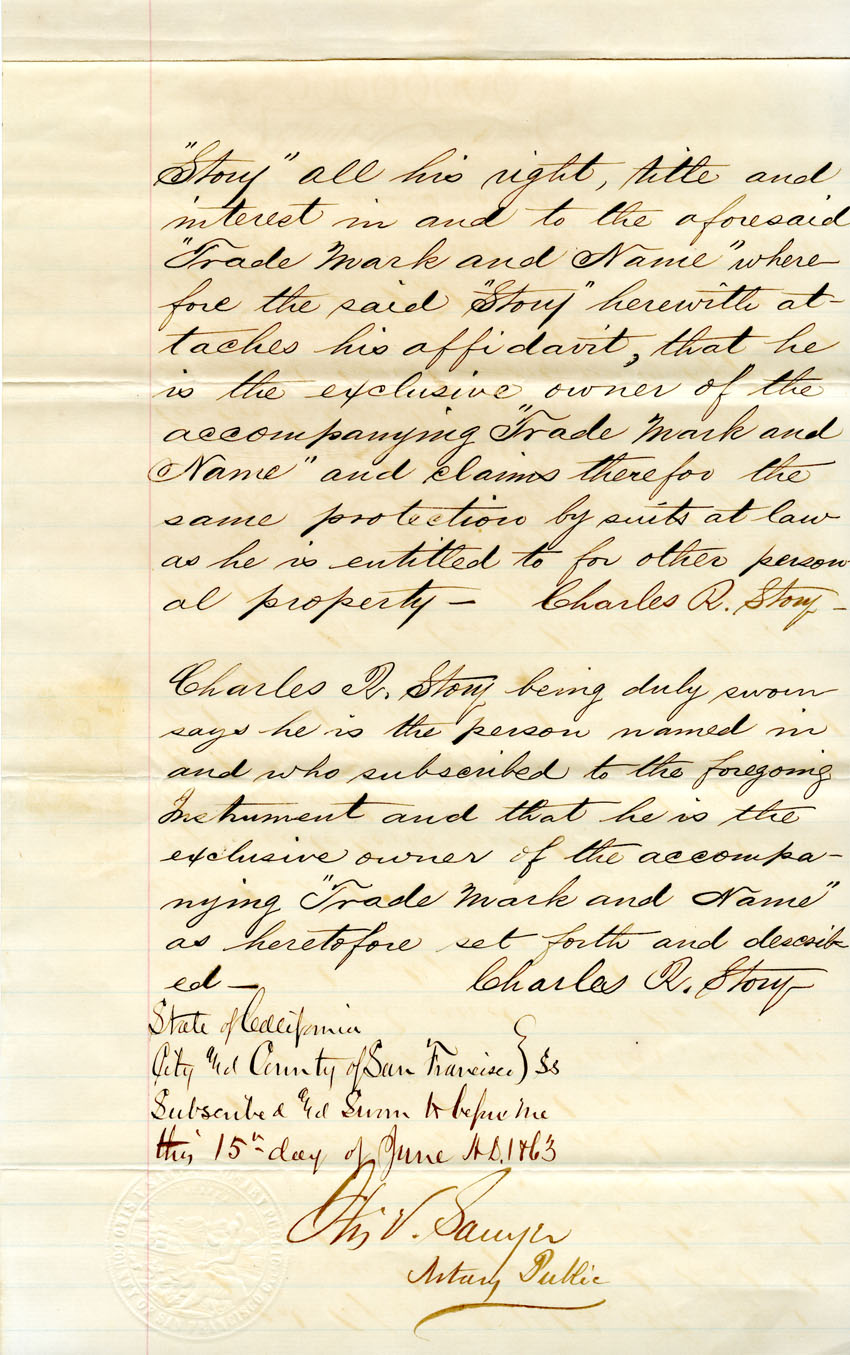 "Story" all his right, title and
interest in and to the aforesaid
"Trade Mark and Name" where-
fore the said "Story" herewith at-
taches his affidavit, that he
is the exclusive owner of the
accompanying "Trade Mark and
Name" and claims therefor the
same protection by suits at law
as he is entitled to for other person
al property — Charles R. Story —
Charles R. Story being duly sworn
says he is the person named in
and who subscribed to the foregoing
Instrument and that he is the
exclusive owner of the accompa-
nying "Trade Mark and Name"
as heretofore set forth and describ
ed — Charles R. Story
State of California
City and County of San Francisco } SS
Subscribed and Sworn to before me
this 15th day of June A.D. 1863
Otis V. Sawyer
Notary Public